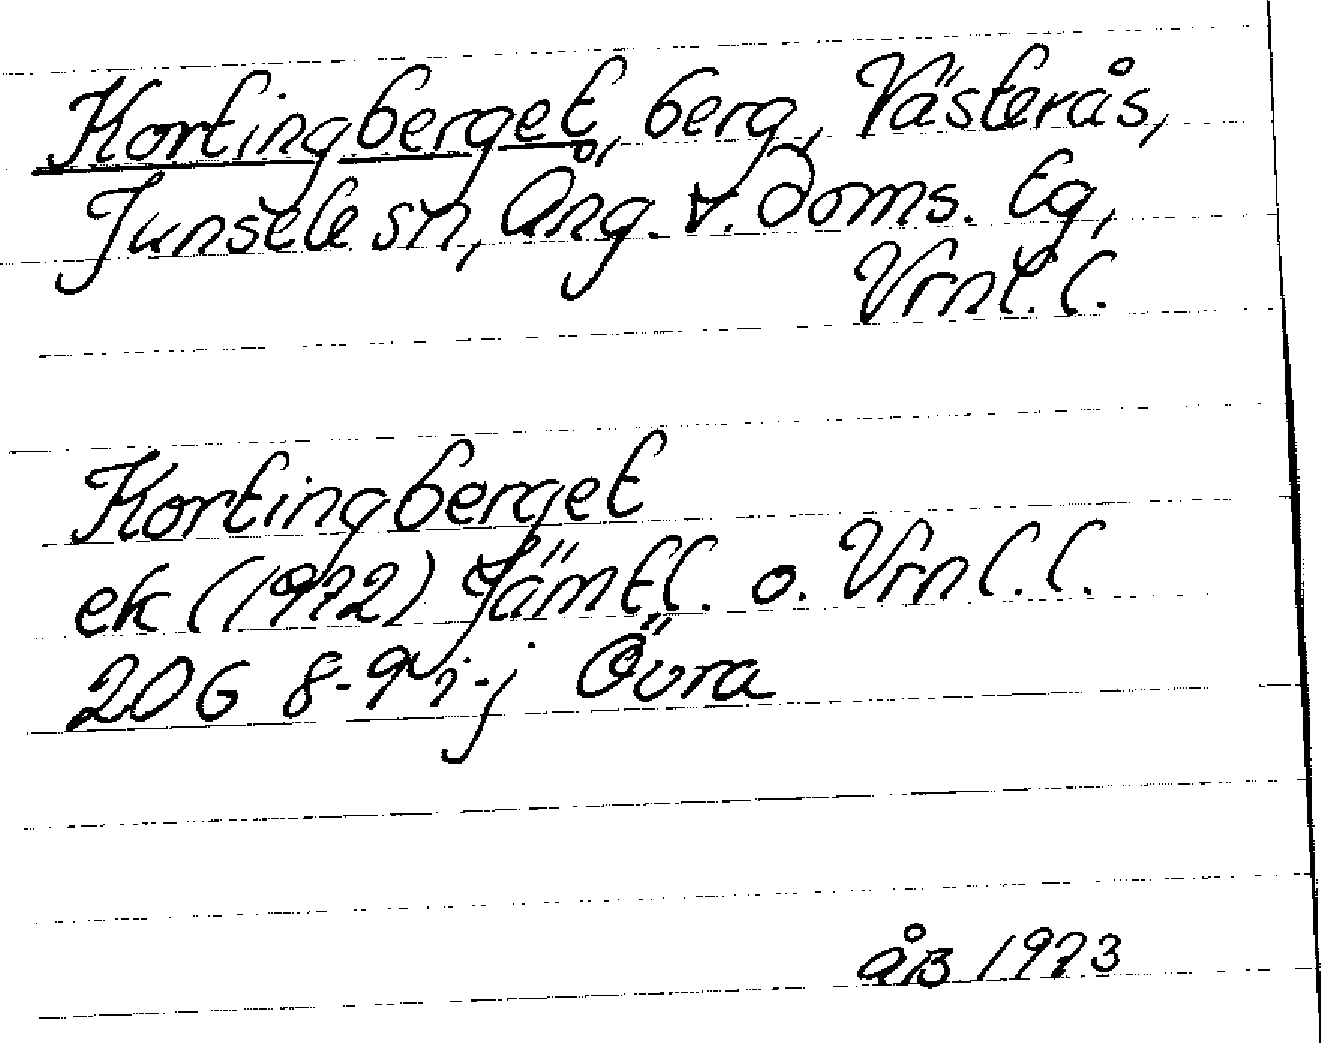 Kortingberget, berg, Västerås,
Junsele sn, Ång. v. Doms. tg,
Vrnl. l.
Kortingberget
ek (1972) Jämtl. o. Vrnl. l.
20G 8-9 i-j Övra
åB 1973